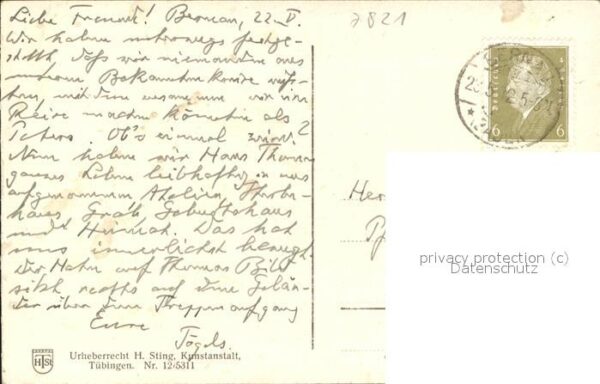 Liebe Freunde! Bernau, 22. V.
7821
Wir haben unterwegs festge-
stellt, daß wir niemanden aus
unserem Bekanntenkreise wüß-
ten, mit dem wir eine
Reise machen könnten als
Ob's einmal wird?
Nun haben wir Hans Thomas
ganzes Leben leibhaftig in uns
aufgenommen, Atelier, Sterbe-
haus, Grab, Geburtshaus
und Heimat. Das hat
uns innerlichst bewegt.
Der Hahn auf Thomas Bild
sitzt rechts auf dem Gelän-
der über dem Treppenaufgang
Eure
BERNAU
Deutsches Reich
6 6
Her
privacy protection (c)
Datenschutz
HStT
Urheberrecht H. Sting, Kunstanstalt,
Tübingen. Nr. 12/5311